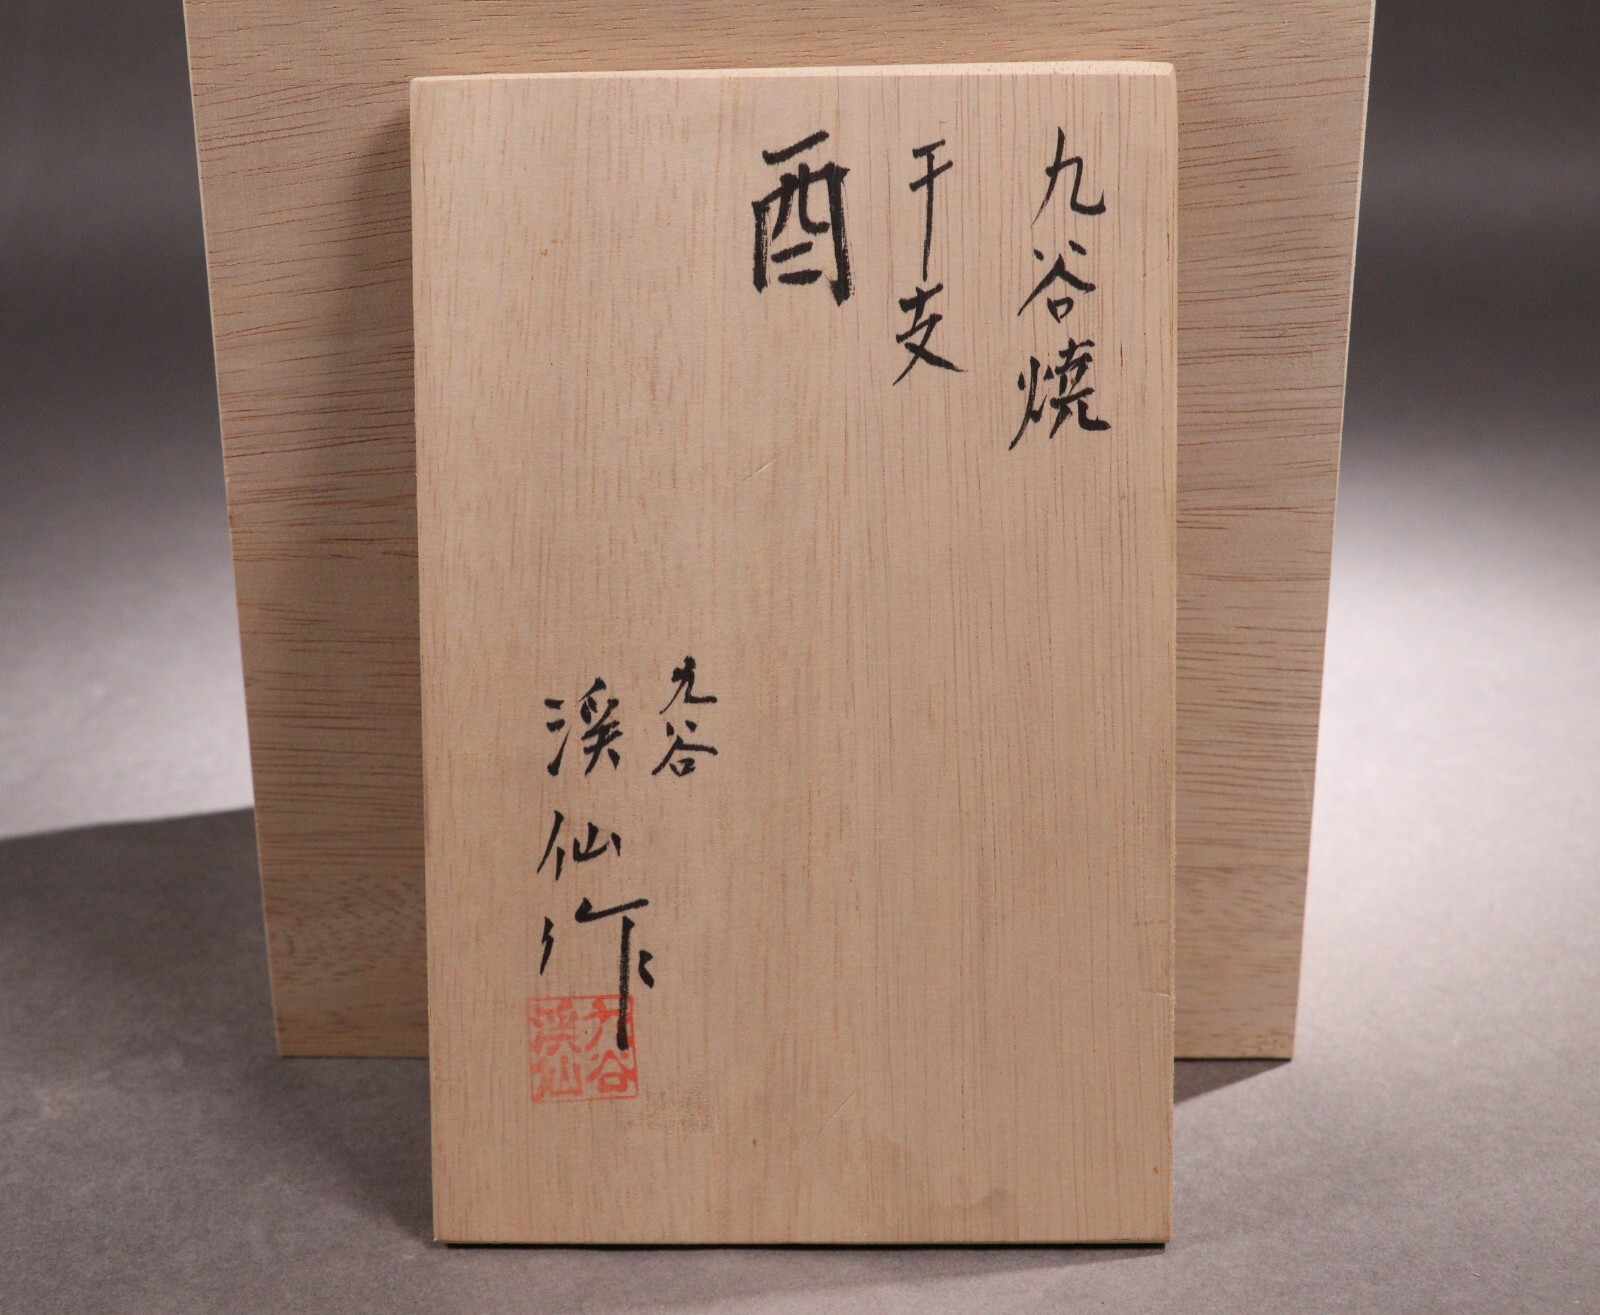 九谷焼
干支
酉
九谷
渓仙作
九谷
渓仙